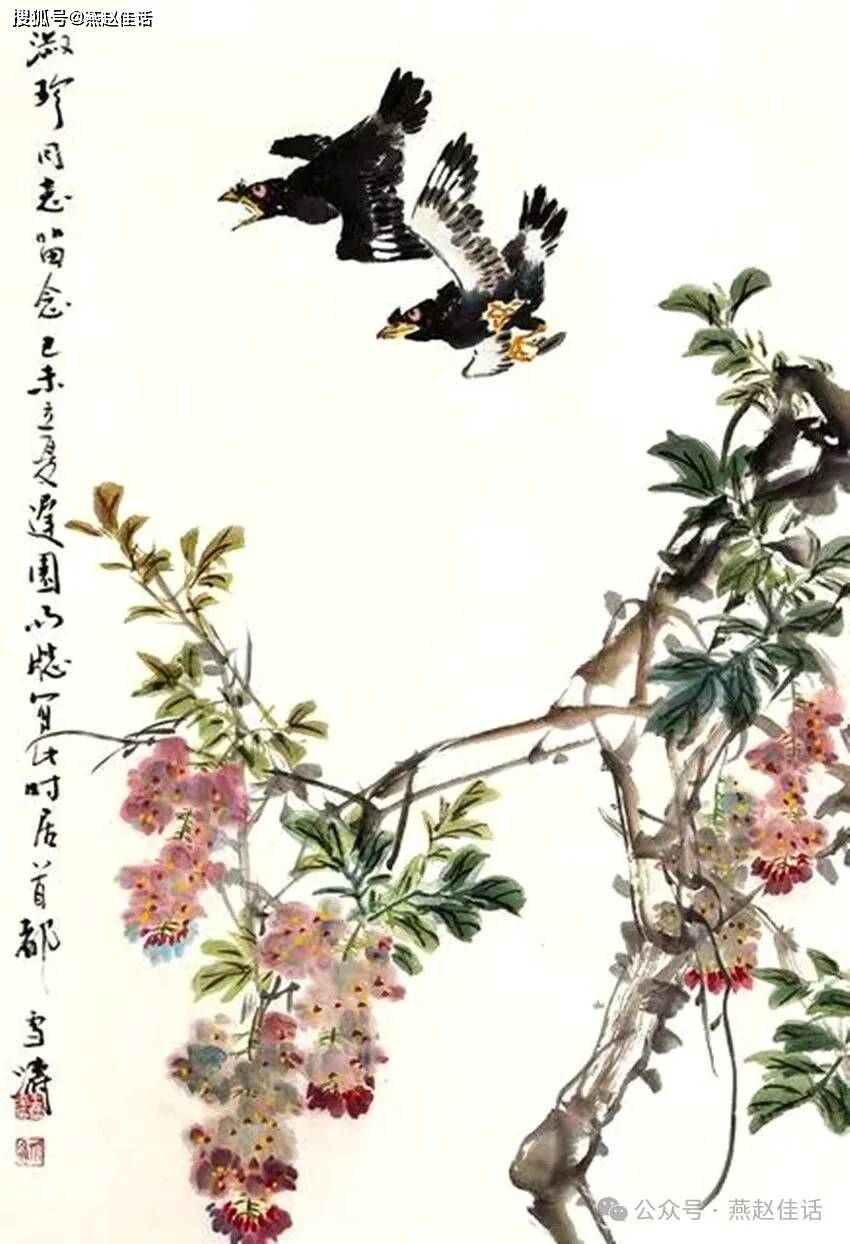 搜狐号@燕赵佳话
淑珍同志留念己未立夏遲園明窓寫此时居首都 雪濤
公众号·燕赵佳话